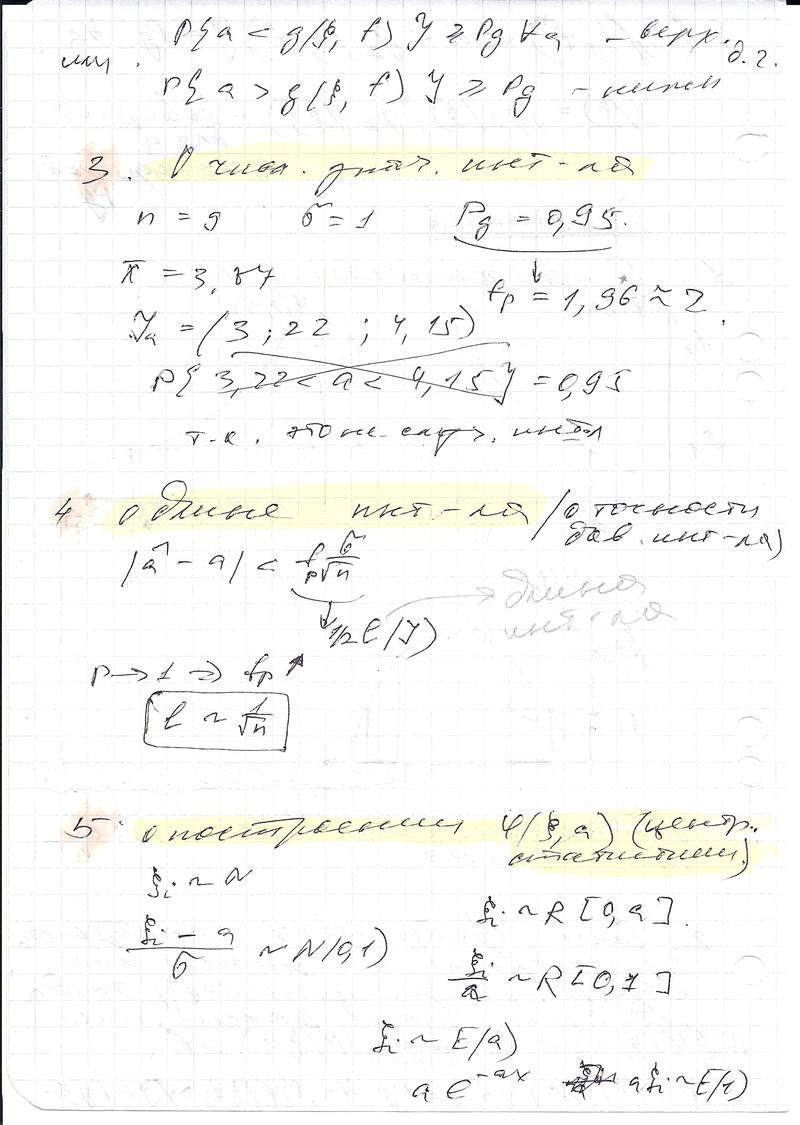 P{a < g(ξ, f)} ≥ Pg ∀a – верх. д.г.
или
P{a > g(ξ, f)} ≥ Pg – нижн
3. О числ. знач. инт-ла
n = 9 σ = 1 Pg = 0,95.
x̄ = 3,
fp = 1,96 ≈ 2.
Ja = (3;22 ; 4,15)
P{3,22 < a < 4,15} = 0,95
т.к. это не случ. инт-л
4 о длине инт-ла (о точности
дов. инт-ла)
|â - a| < fp σ/√n
1/2 l(J) длина
инт-ла
p → 1 ⇒ fp ↑
l ~ 1/√n
5. о построении φ(ξ,a) (центр.
статистики)
ξi ~ N
(ξi - a)/σ ~ N(0,1)
ξi ~ R[0,a].
ξi/a ~ R[0,1]
ξi ~ E(a)
a e^-ax aξi ~ E(1)